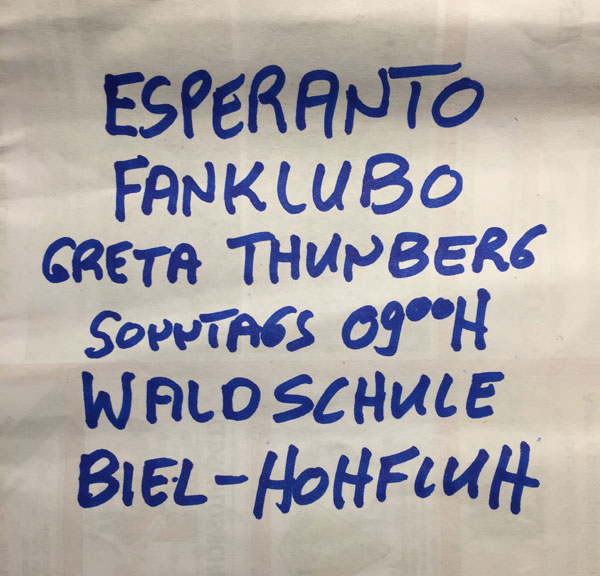 ESPERANTO
FANKLUBO
GRETA THUNBERG
SONNTAGS 09⁰⁰H
WALDSCHULE
BIEL-HOHFLUH